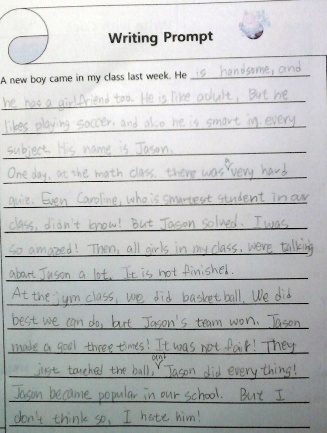 Writing Prompt
A new boy came in my class last week. He is handsome, and
he has a girlfriend too. He is like adult. But he
likes playing soccer, and also he is smart in every
subject. His name is Jason.
One day, at the math class, there was a very hard
quiz. Even Caroline, who is smartest student in our
class, didn't know! But Jason solved. I was
so amazed! Then, all girls in my class, were talking
about Jason a lot. It is not finished.
At the gym class, we did basketball. We did
best we can do, but Jason's team won. Jason
made a goal three times! It was not fair! They
just touched the ball, and Jason did everything!
Jason became popular in our school. But I
don't think so, I hate him!